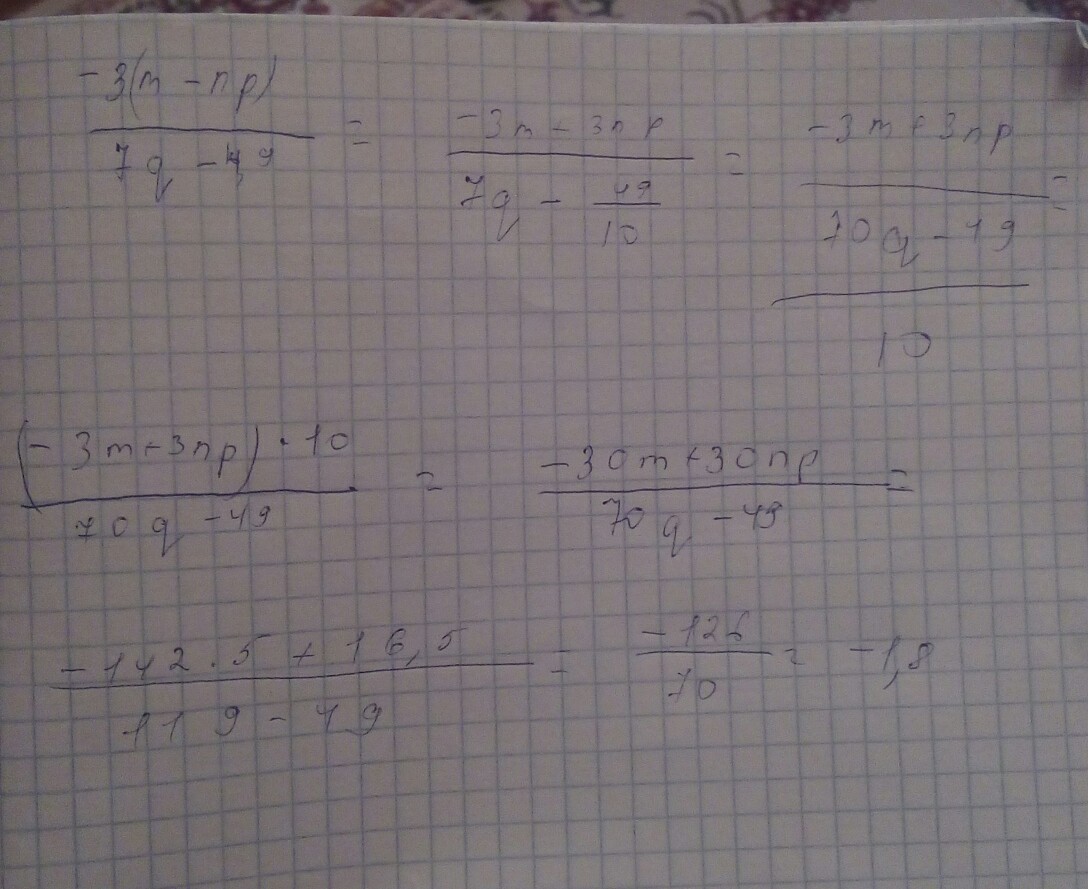 -3(m - np) / 7q - 4,9 = -3m - 3np / 7q - 49/10 = -3m + 3np / 70q - 49 / 10 =
(-3m + 3np) · 10 / 70q - 49 = -30m + 30np / 70q - 49 =
-142.5 + 16,5 / 119 - 49 = -126 / 70 = -1,8